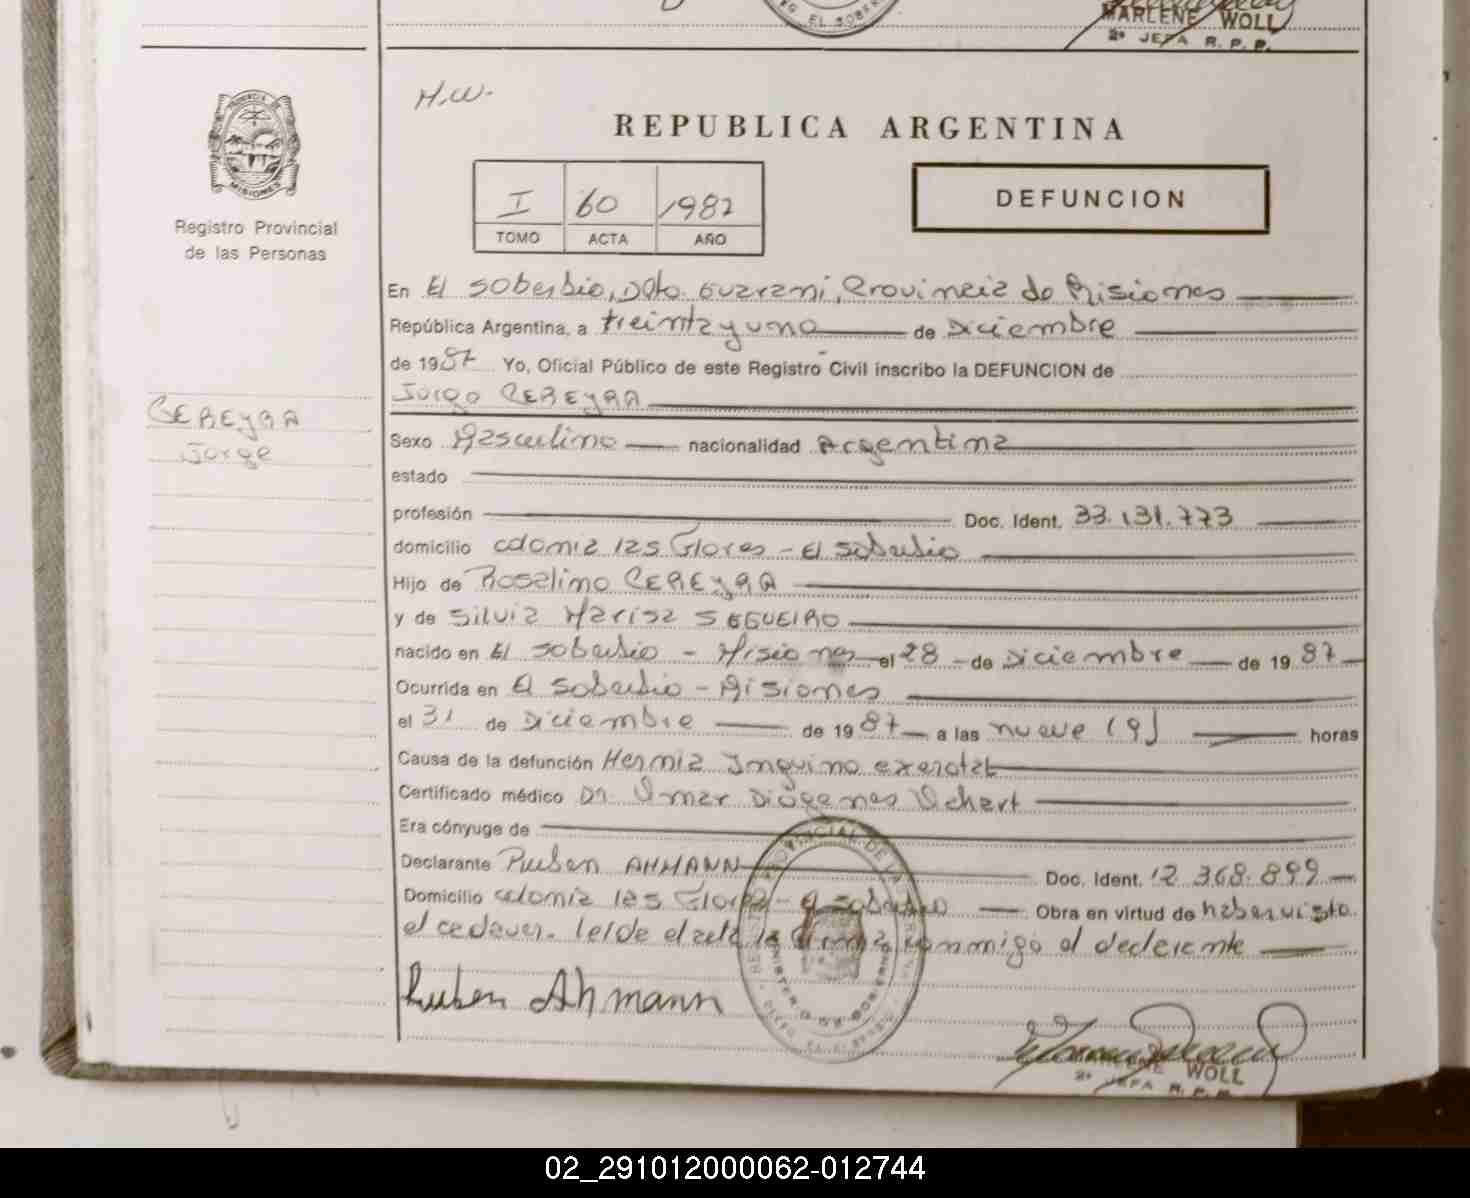 EL SOBER
MARLENE WOLL
2º JEFA R. P. P.
H.W.
PROVINCIA DE
MISIONES
Registro Provincial
de las Personas
REPUBLICA ARGENTINA
I 60 1987
TOMO ACTA AÑO
DEFUNCION
En El Soberbio, Dpto. Guarani, Provincia de Misiones
República Argentina, a treinta y uno de Diciembre
de 1987 Yo, Oficial Público de este Registro Civil inscribo la DEFUNCION de
Jorge CEREYRA
CEREYRA
Jorge
Sexo Masculino nacionalidad Argentina
estado
profesión Doc. Ident. 33.131.773
domicilio colonia las Flores - El Soberbio
Hijo de Roselino CEREYRA
y de Silvia Marisa SEGUEIRO
nacido en El Soberbio - Misiones el 28 de Diciembre de 1987
Ocurrida en El Soberbio - Misiones
el 31 de Diciembre de 1987 a las nueve (9) horas
Causa de la defunción Hernia Inguino
Certificado médico Dr. Omar Diógenes
Era cónyuge de
Declarante Ruben AHMANN Doc. Ident. 12.368.899
Domicilio colonia las Flores - El Soberbio Obra en virtud de haber visto
el cadaver. Leide el acta la firma conmigo el declarante
Ruben Ahmann
MARLENE WOLL
2º JEFA R. P. P.
02_291012000062-012744